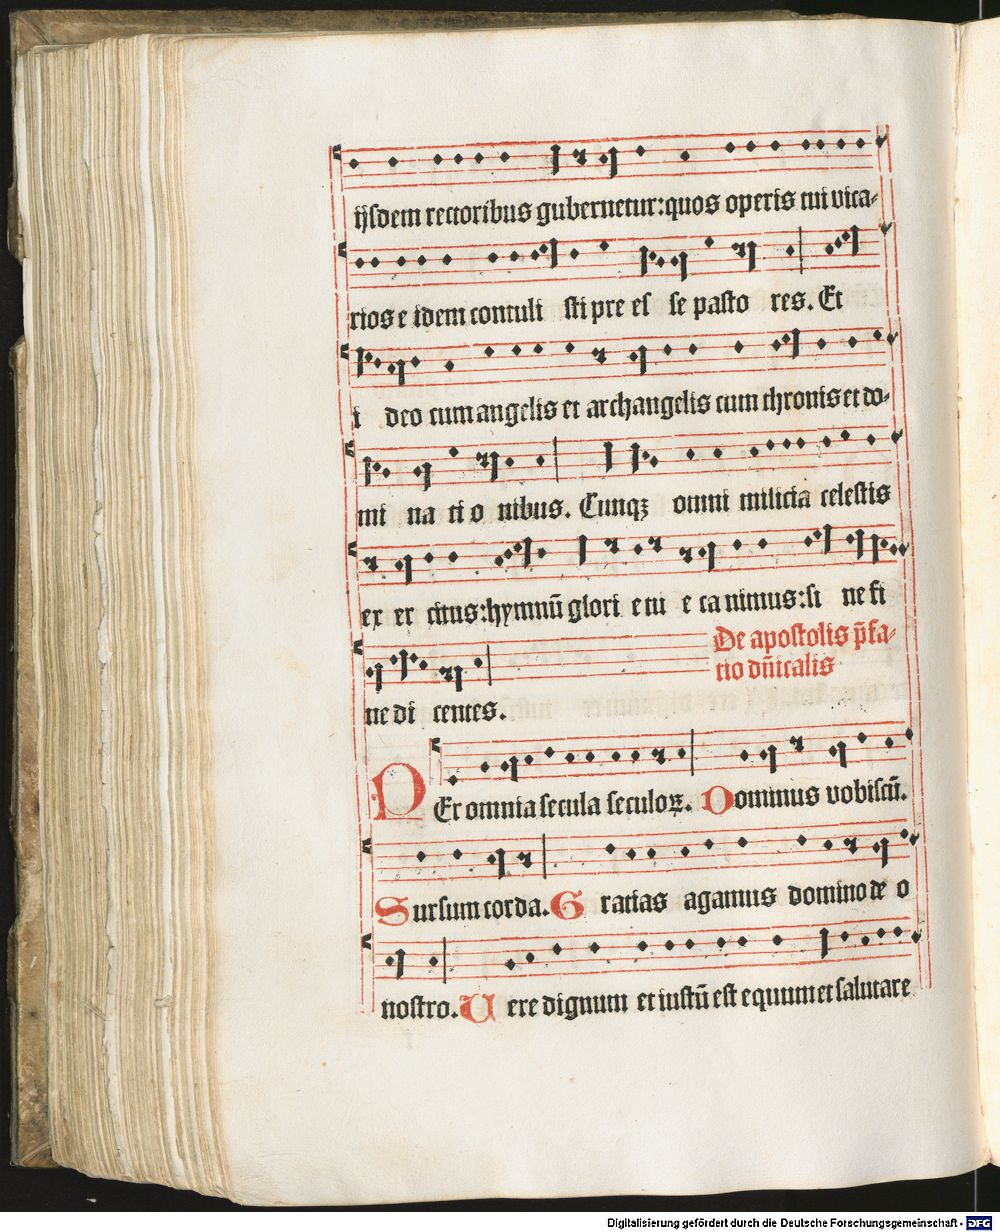 ijsdem rectoribus gubernetur: quos operis tui vica-
rios e idem contuli sti pre es se pasto res. Et
i deo cum angelis et archangelis cum thronis et do-
mi na ti o nibus. Cunqꝫ omni milicia celestis
ex er citus: hymnū glori e tu e ca nimus: si ne fi
De apostolis p̄fa-
tio dn̄icalis
ne di centes.
PEr omnia secula seculoꝝ. Dominus vobiscū.
Sursum corda. Gratias agamus domino de o
nostro. Uere dignum et iustū est equum et salutare
Digitalisierung gefördert durch die Deutsche Forschungsgemeinschaft - DFG